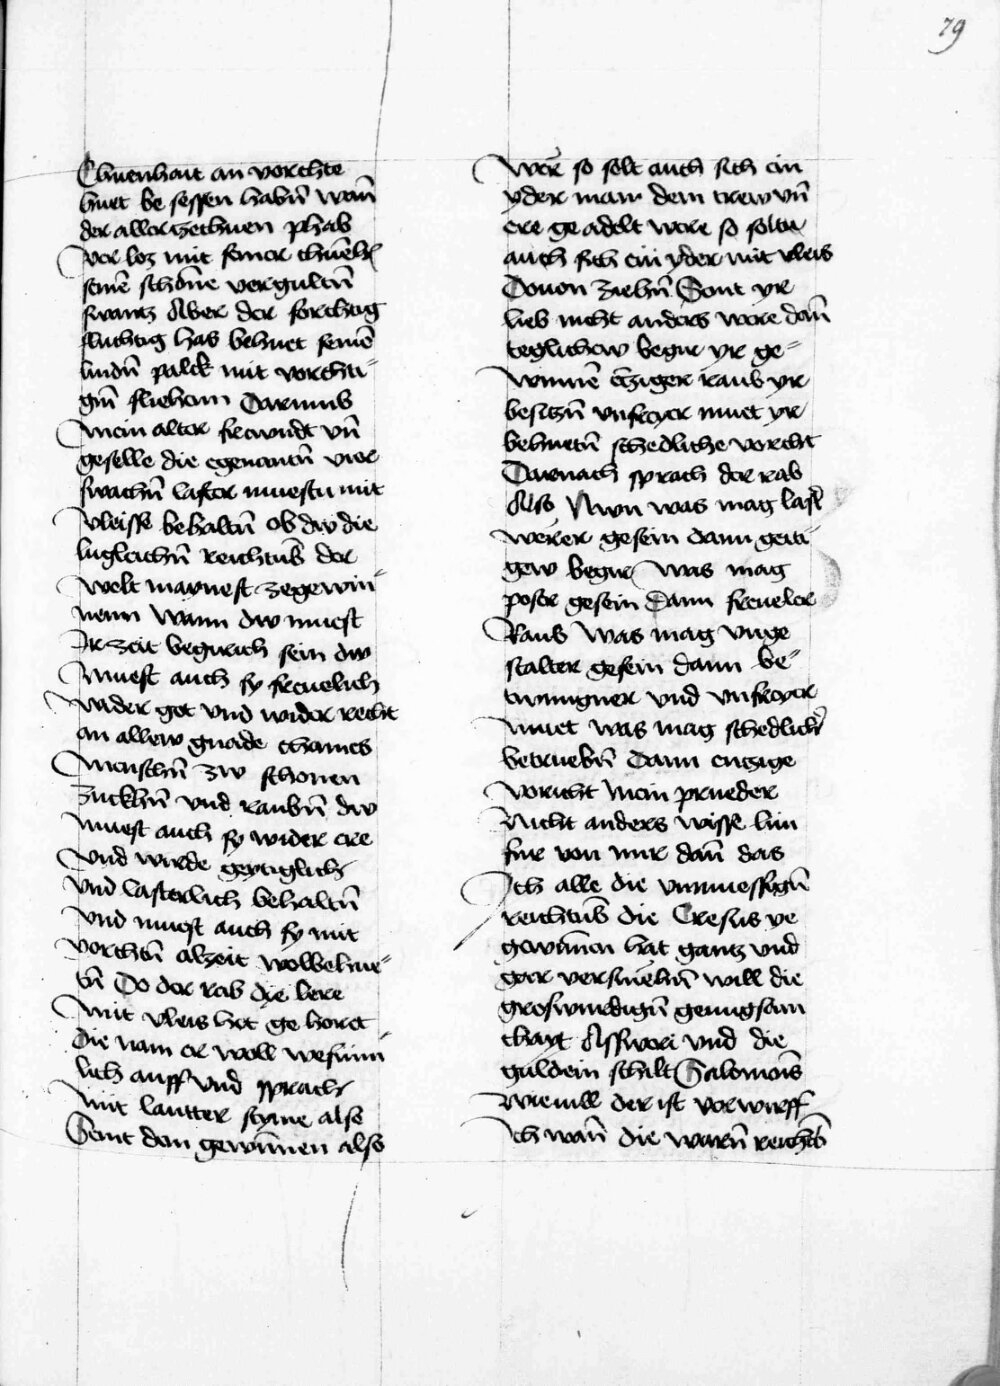 79
Chuenhait an vorchte
huet be sessen habn̄ wan̄
der aller zechuen phab
ver loz mit seiner chuenh
seinē schonē vergultn̄
swantz Aber der forchtig
fluchtig has behuet seinē
lindn̄ palck mit vorchti-
gn̄ fliehenn Darumb
Mein alter frewndt vn̄
geselle die egenantn̄ vier
swachn̄ laster muestu mit
vleisse behaltn̄ ob dw die
lugleichn̄ reichtub der
welt maynest zegewin-
nenn Wann dw muest
Ir zeit begirich sein dw
Muest auch sy freuelich
wider got vnd wider recht
an allew gnade chaines
Menschn̄ zw schonen
zuckhn̄ vnd raubn̄ dw
muest auch sy wider ere
vnd wirde geytiglich
vnd lasterlich behaltn̄
vnd muest auch sy mit
vorchtn̄ alzeit wolbehue-
tn̄ Do der rab die lere
mit vleis het ge horet
die nam er woll wesinn-
lich auff vnd sprach
mit lautter styme also
Seint den gewinnen also
Wer so solt auch sich ein
yder man dem trew vn̄
ere ge adelt were so solte
auch sich ein yder mit vleis
Douon ziehn̄ Seint yr
lieb nicht anders were dan̄
teglichew begir yr ge-
winnē ytziger raub yr
besitzn̄ vnfreyer muet yr
behuetn̄ schedliche vorcht
Darnach sprach der rab
Also Nwn was mag last
werer gesein dann geiti-
gew begir Was mag
poser gesein Dann freueler
Raub Was mag vnge
stalter gesein dann be-
twungner vnd vnfreyer
muet was mag schedlich
betruebn̄ Dann entzige
voricht Mein prueder
Nicht anders wisse hin
fur von mir dan̄ das
Ich alle die vnmessign̄
reichtub die Cresus ye
gewunnen hat gantz vnd
gar versmehn̄ will die
groswirdign̄ genugsam
chayt Assweri vnd die
guldein schilt Salomōis
Wieuill der ist vorwirff
Ich wan̄ die warn̄ reichtb